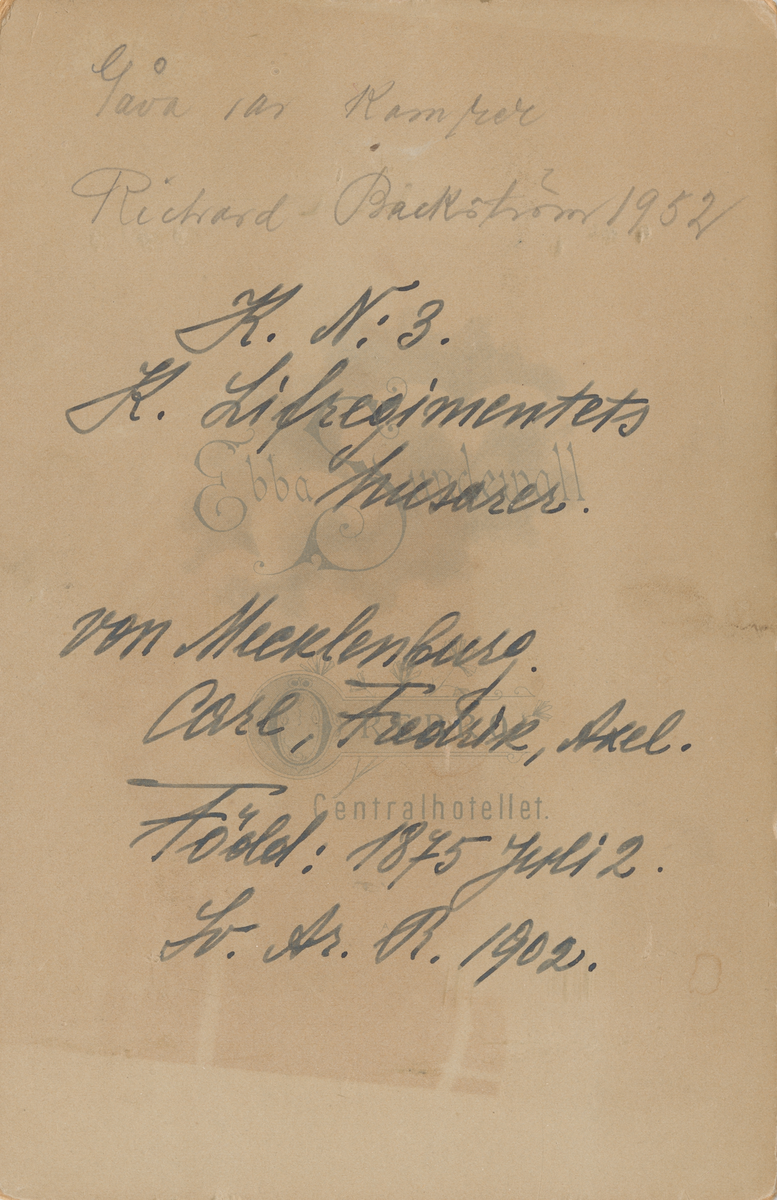 Gåva
Richard Backström 1952
K. N:3.
K. Lifregimentets
husarer.
Ebba
von Mecklenburg.
Carl, Fredrik, Axel.
ÖREBRO
Centralhotellet.
Född: 1875 Juli 2.
Sv. Ar. R. 1902.